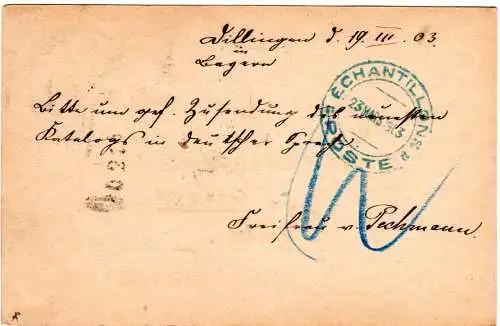 Dillingen d. 19. III. 03.
in
Bayern
Bitte um gef. Zusendung des neuesten
Katalogs in deutscher Sprache.
Freifrau v. Pechmann.
ECHANTILLONS
TRIESTE